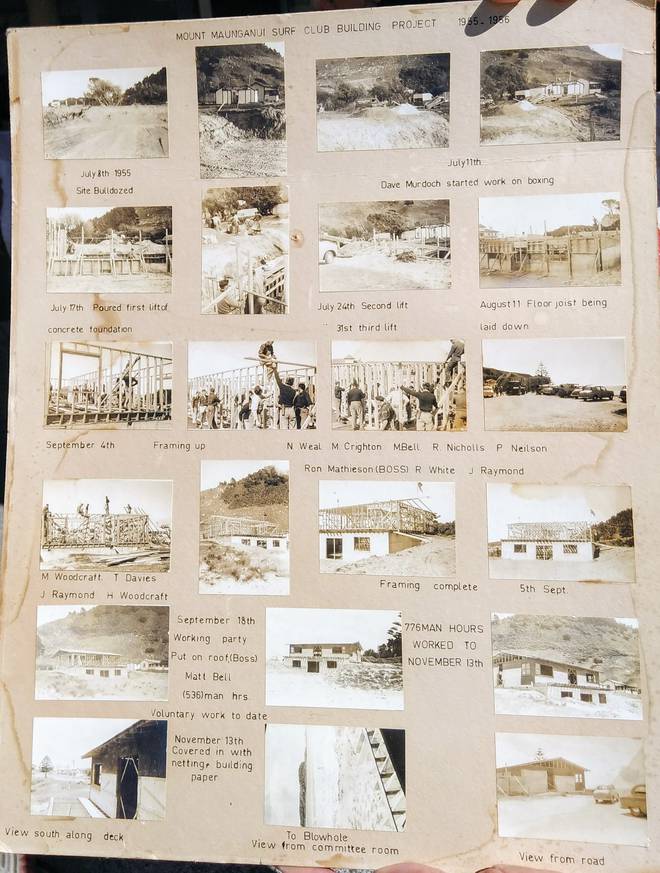 MOUNT MAUNGANUI SURF CLUB BUILDING PROJECT 1955-1956
July 8th 1955
Site Bulldozed
July 11th
Dave Murdoch started work on boxing
July 17th Poured first lift of
concrete foundation
July 24th Second lift
31st third lift
August 11 Floor joist being
laid down
September 4th Framing up N. Weal M. Crighton M.Bell R. Nicholls P. Neilson
Ron Mathieson (BOSS) R White J Raymond
M. Woodcraft. T Davies
J Raymond H Woodcraft
Framing complete 5th Sept.
September 18th
Working party
Put on roof,(Boss)
Matt Bell
(536)man hrs
Voluntary work to date
776MAN HOURS
WORKED TO
NOVEMBER 13th
November 13th
Covered in with
netting & building
paper
View south along deck
To Blowhole
View from committee room
View from road